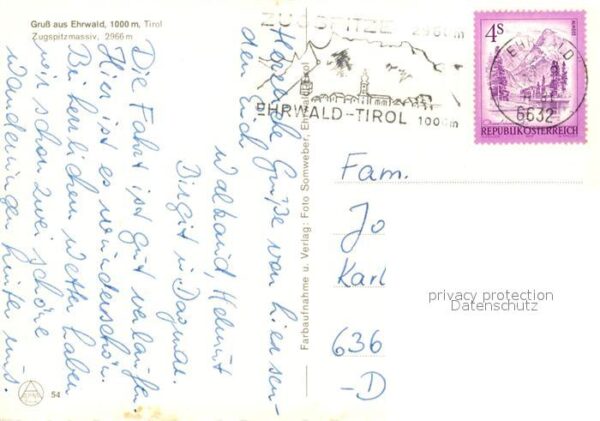 Gruß aus Ehrwald, 1000 m, Tirol
Zugspitzmassiv, 2966 m
Die Fahrt ist gut verlaufen.
Hier ist es wunderschön.
Bei herrlichem Wetter haben
wir schon zwei schöne
Wanderungen hinter uns.
Herzliche Grüße von hier sen-
den Euch
Waltraud, Helmut
Birgit u Dagmar.
Farbaufnahme u. Verlag: Foto Somweber, Ehrwald, Tirol
54
ZUGSPITZE 2966 m
EHRWALD-TIROL 1000m
EHRWALD
6632
4S
REPUBLIK ÖSTERREICH
Fam.
Jo
Karl
636
-D
privacy protection
Datenschutz